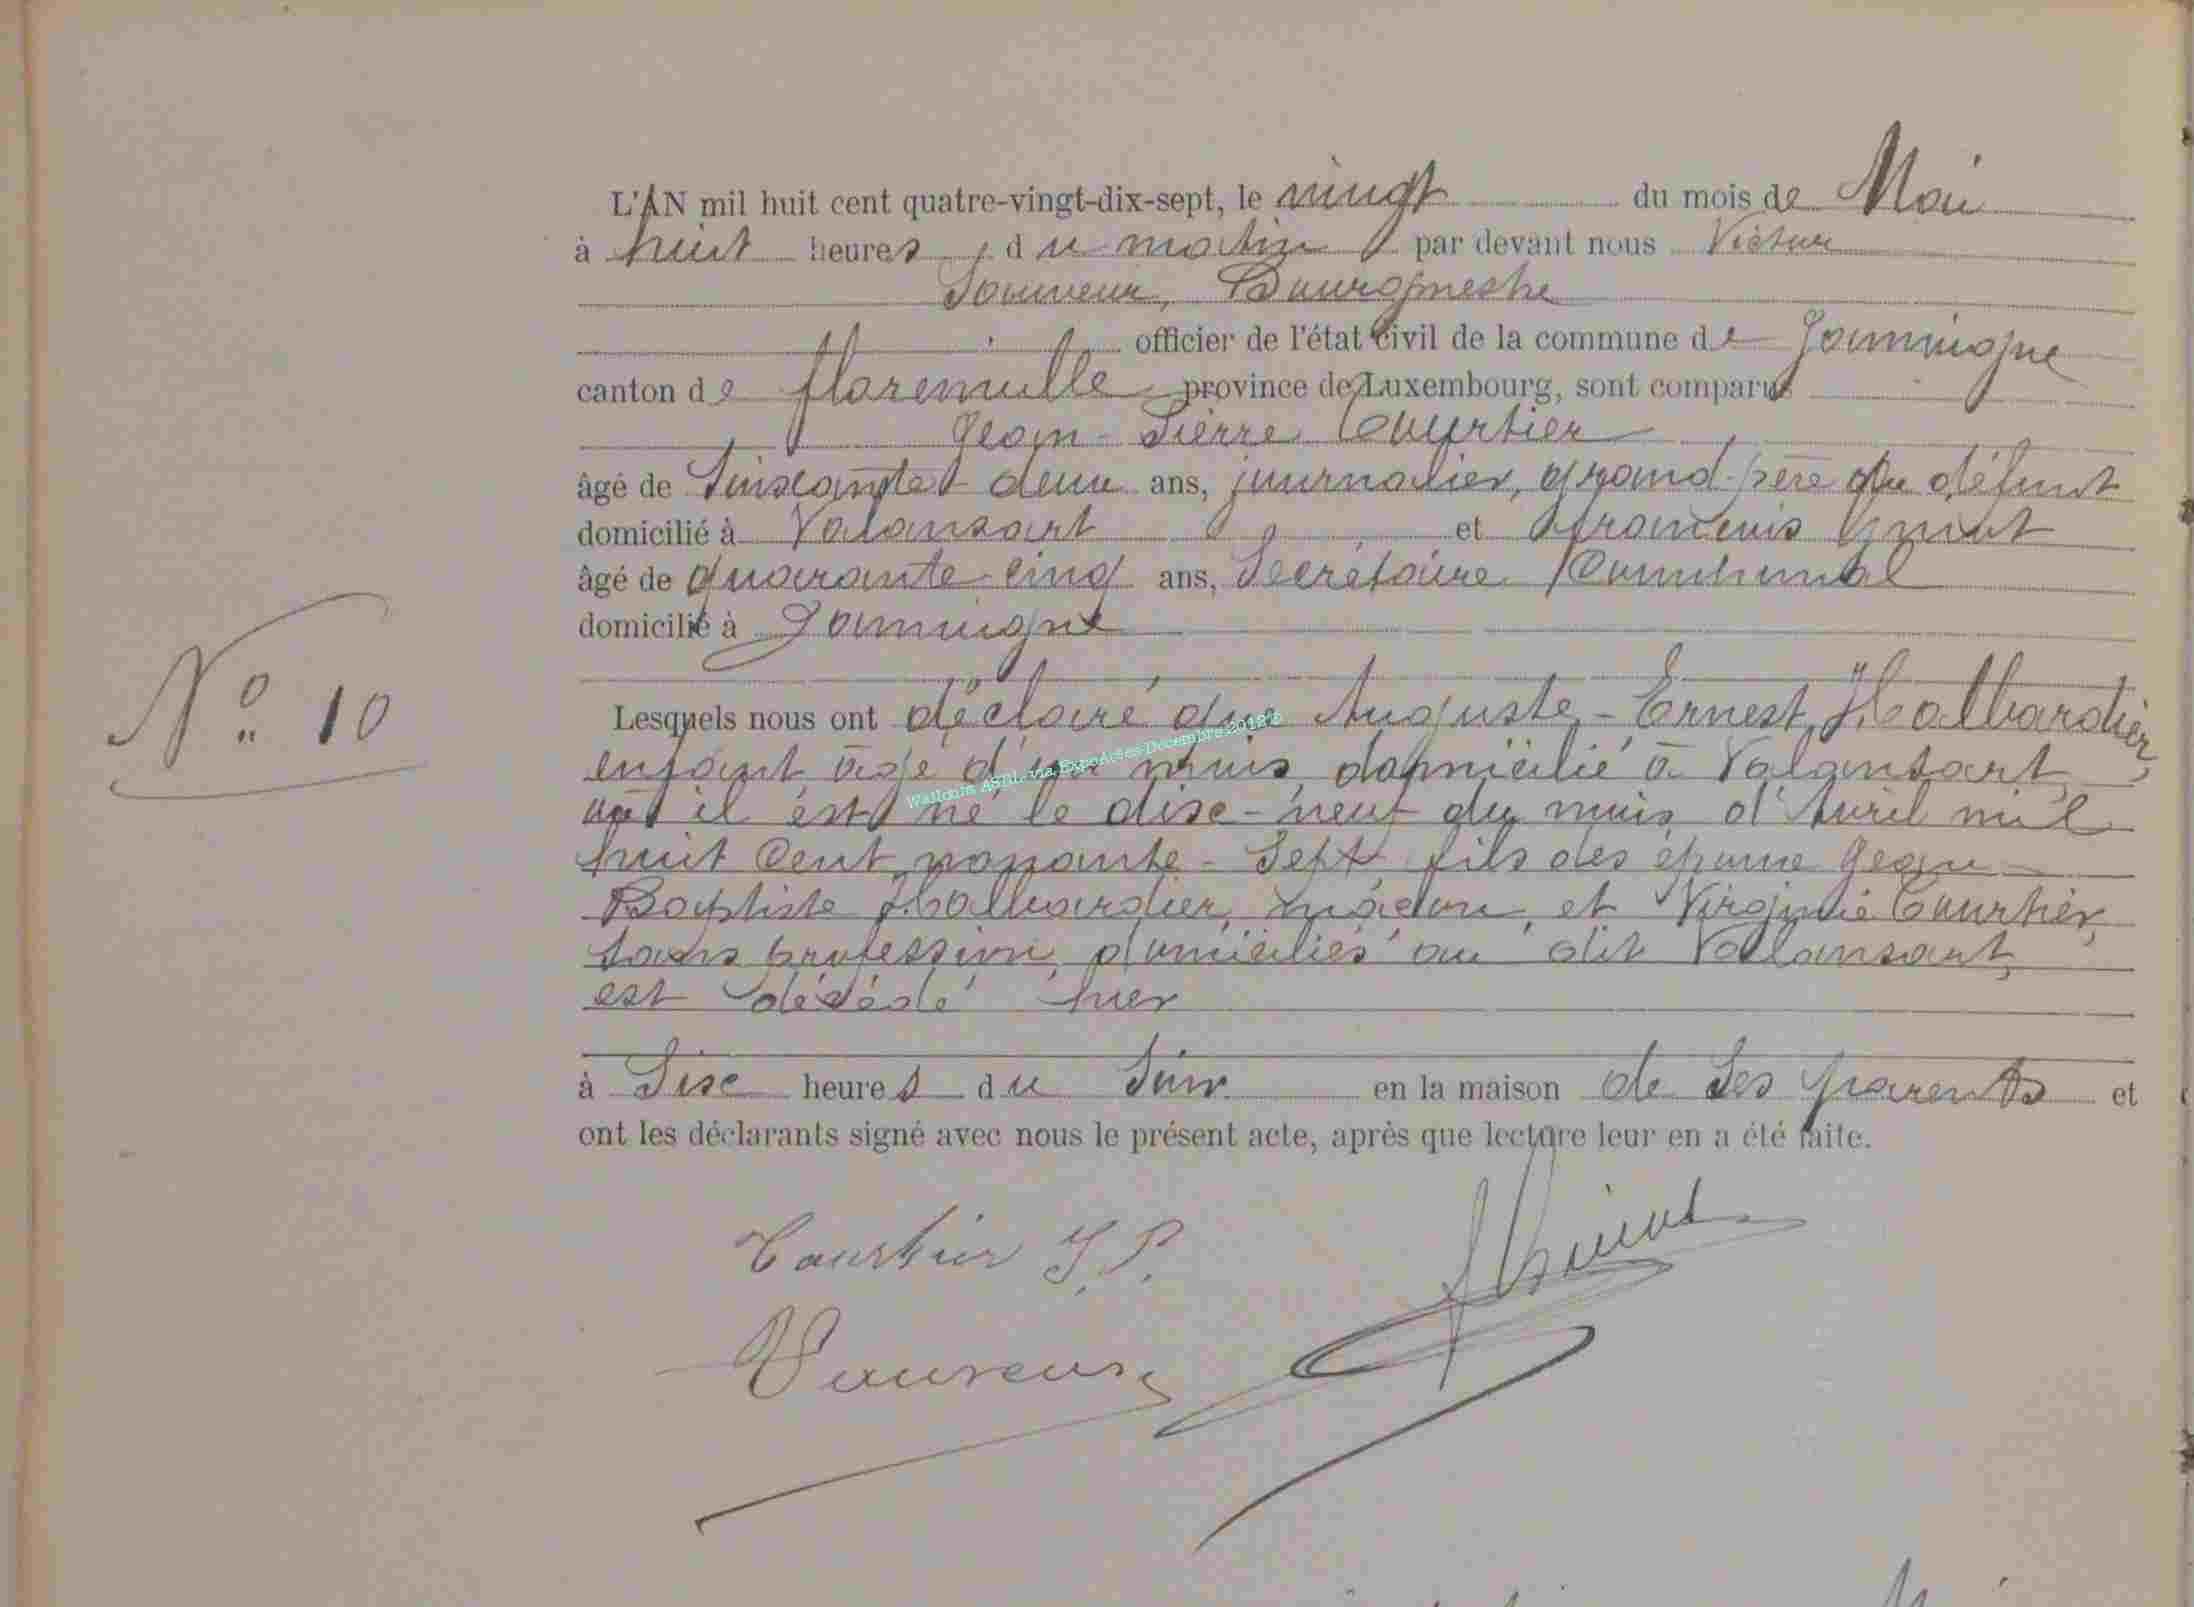 L'AN mil huit cent quatre-vingt-dix-sept, le vingt du mois de Mai
à huit heures, du matin par devant nous Victor
Bourgmestre
officier de l'état civil de la commune de Jamoigne
canton de florenville province de Luxembourg, sont comparus
Jean-Pierre Courtier
âgé de Soixante deux ans, journalier, grand-père du défunt
domicilié à Valansart et françois
âgé de quarante-cinq ans, Secrétaire Communal
domicilié à Jamoigne
N° 10
Lesquels nous ont déclaré que Auguste-Ernest Halbardier,
enfant âgé d'un mois, domicilié à Valansart,
où il est né le dix-neuf du mois d'Avril mil
huit Cent nonante-Sept, fils des époux Jean-
Baptiste Halbardier, maçon, et Virginie Courtier,
sans profession, domiciliés au dit Valansart,
est décédé hier
à Six heures du Soir en la maison de Ses parents et
ont les déclarants signé avec nous le présent acte, après que lecture leur en a été faite.
Wallonia ASBL via ExpoActes Décembre 2018
Courtier J. P.